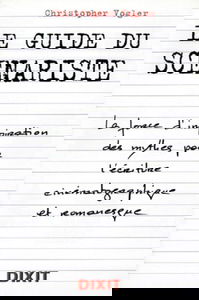 Christopher Vogler
LE GUIDE DU
SCÉNARISTE
La force d'in
piration
des mythes, pour
l'écriture
cinématographique
et romanesque
DIXIT
DIXIT